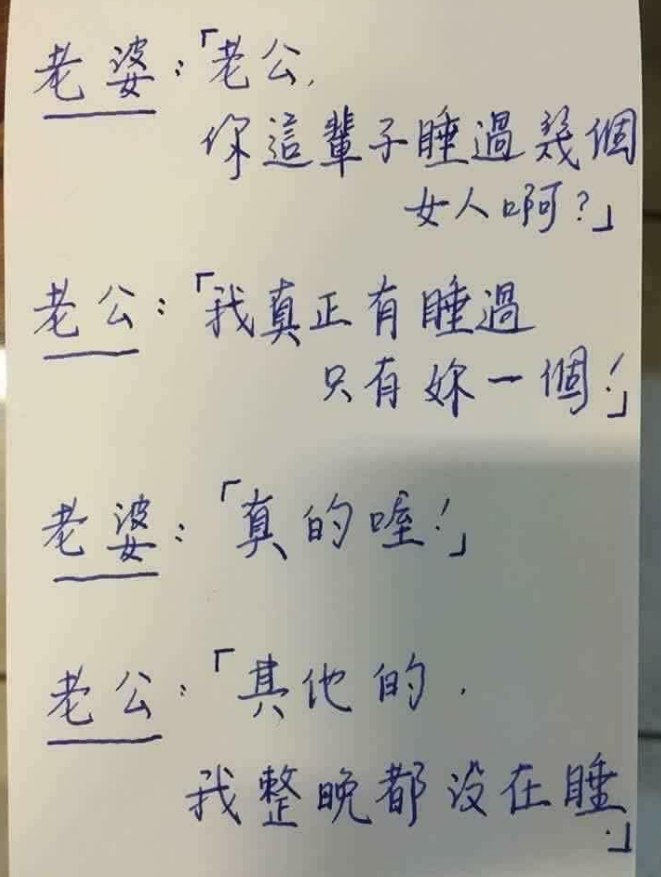 老婆：「老公，
你這輩子睡過幾個
女人啊？」
老公：「我真正有睡過
只有妳一個！」
老婆：「真的喔！」
老公：「其他的，
我整晚都沒在睡.」